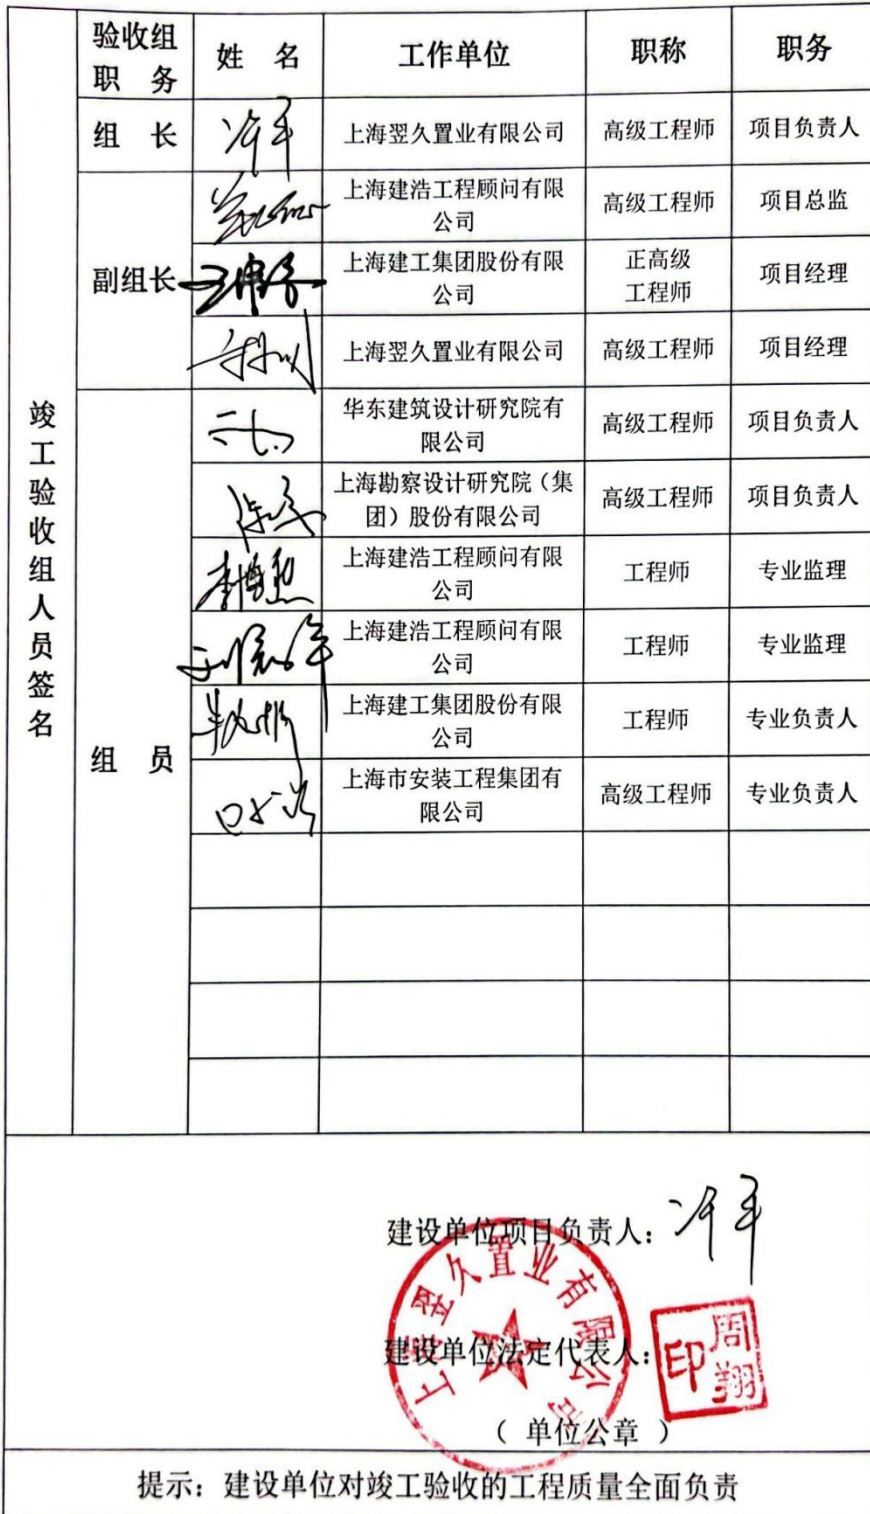 验收组
职 务
姓 名
工作单位
职称
职务
竣工验收组人员签名
组 长
上海翌久置业有限公司
高级工程师
项目负责人
副组长
上海建浩工程顾问有限
公司
高级工程师
项目总监
上海建工集团股份有限
公司
正高级
工程师
项目经理
上海翌久置业有限公司
高级工程师
项目经理
组 员
华东建筑设计研究院有
限公司
高级工程师
项目负责人
上海勘察设计研究院（集
团）股份有限公司
高级工程师
项目负责人
上海建浩工程顾问有限
公司
工程师
专业监理
上海建浩工程顾问有限
公司
工程师
专业监理
上海建工集团股份有限
公司
工程师
专业负责人
上海市安装工程集团有
限公司
高级工程师
专业负责人
建设单位项目负责人：
上海翌久置业有限公司
建设单位法定代表人：
周翔印
（ 单位公章 ）
提示：建设单位对竣工验收的工程质量全面负责